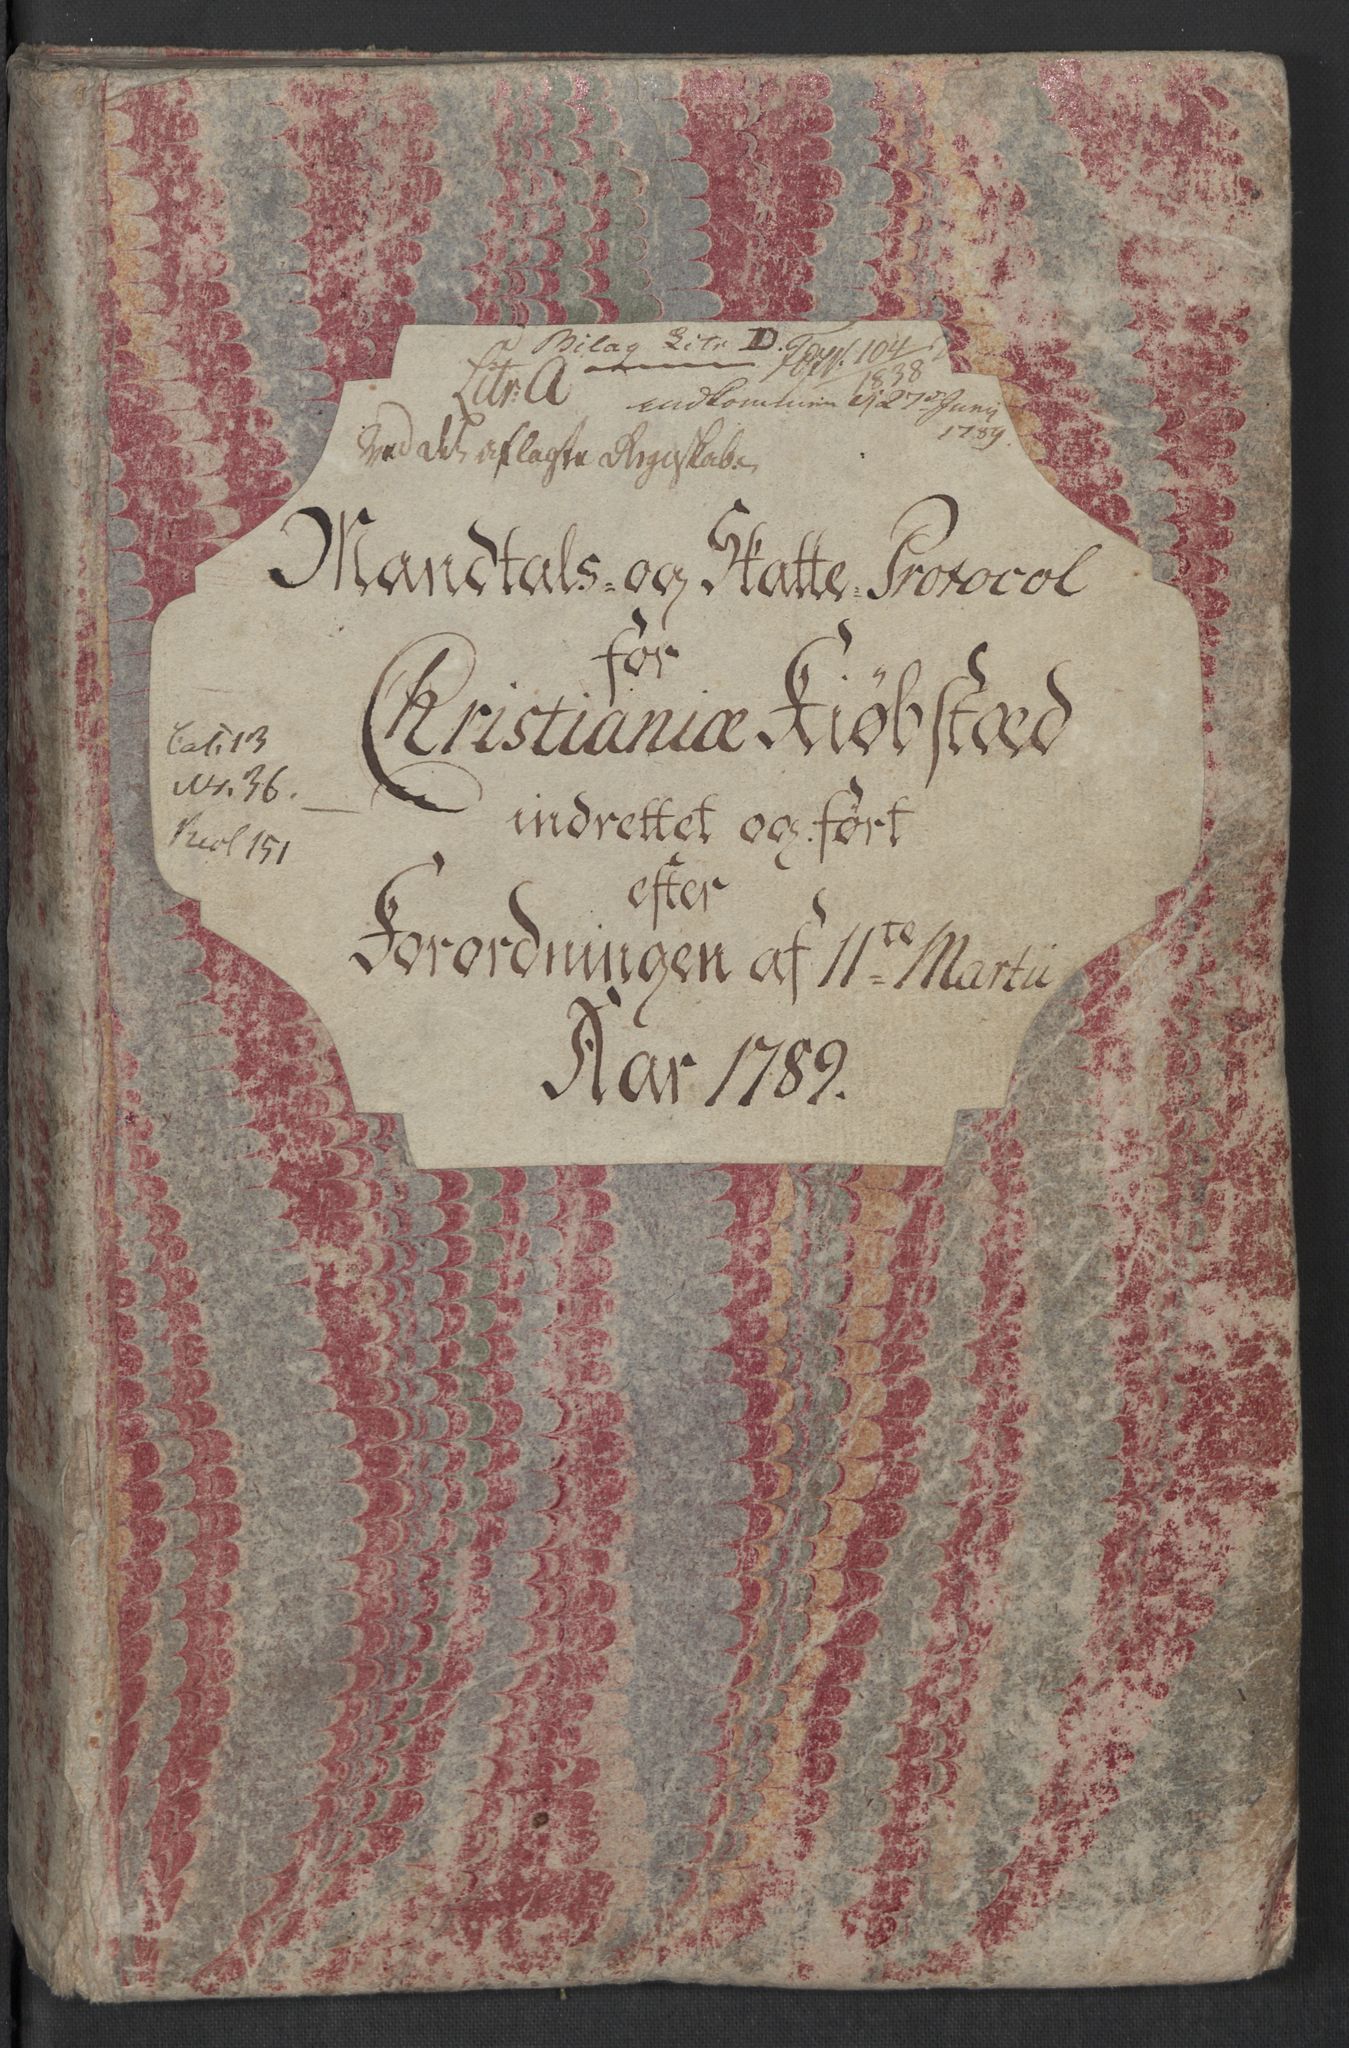 Bilag Litr D.
Litr: A
104
1838
indkommen d 27de Junij
1789.
Ved det aflagte Regnskab
Mandtals- og Skatte-Protocol
for
Christianiæ Kiøbstæd
indrettet og ført
efter
Forordningen af 11te Martii
Aar 1789.
Cat: 13
Nr. 36.
151